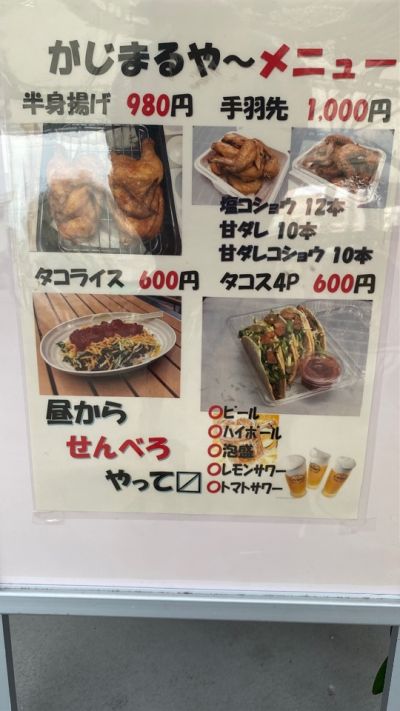 がじまるや〜メニュー
半身揚げ 980円
手羽先 1,000円
塩コショウ 12本
甘ダレ 10本
甘ダレコショウ 10本
タコライス 600円
タコス4P 600円
昼から
せんべろ
やって〼
○ビール
○ハイボール
○泡盛
○レモンサワー
○トマトサワー